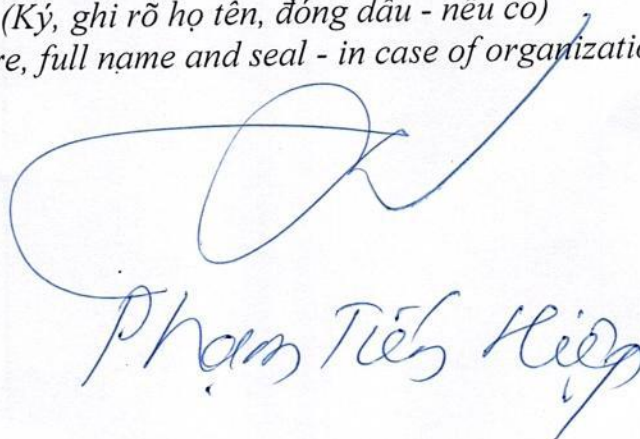 (Ký, ghi rõ họ tên, đóng dấu - nếu có)
re, full name and seal - in case of organizatio
Phạm Tiến Hiệp